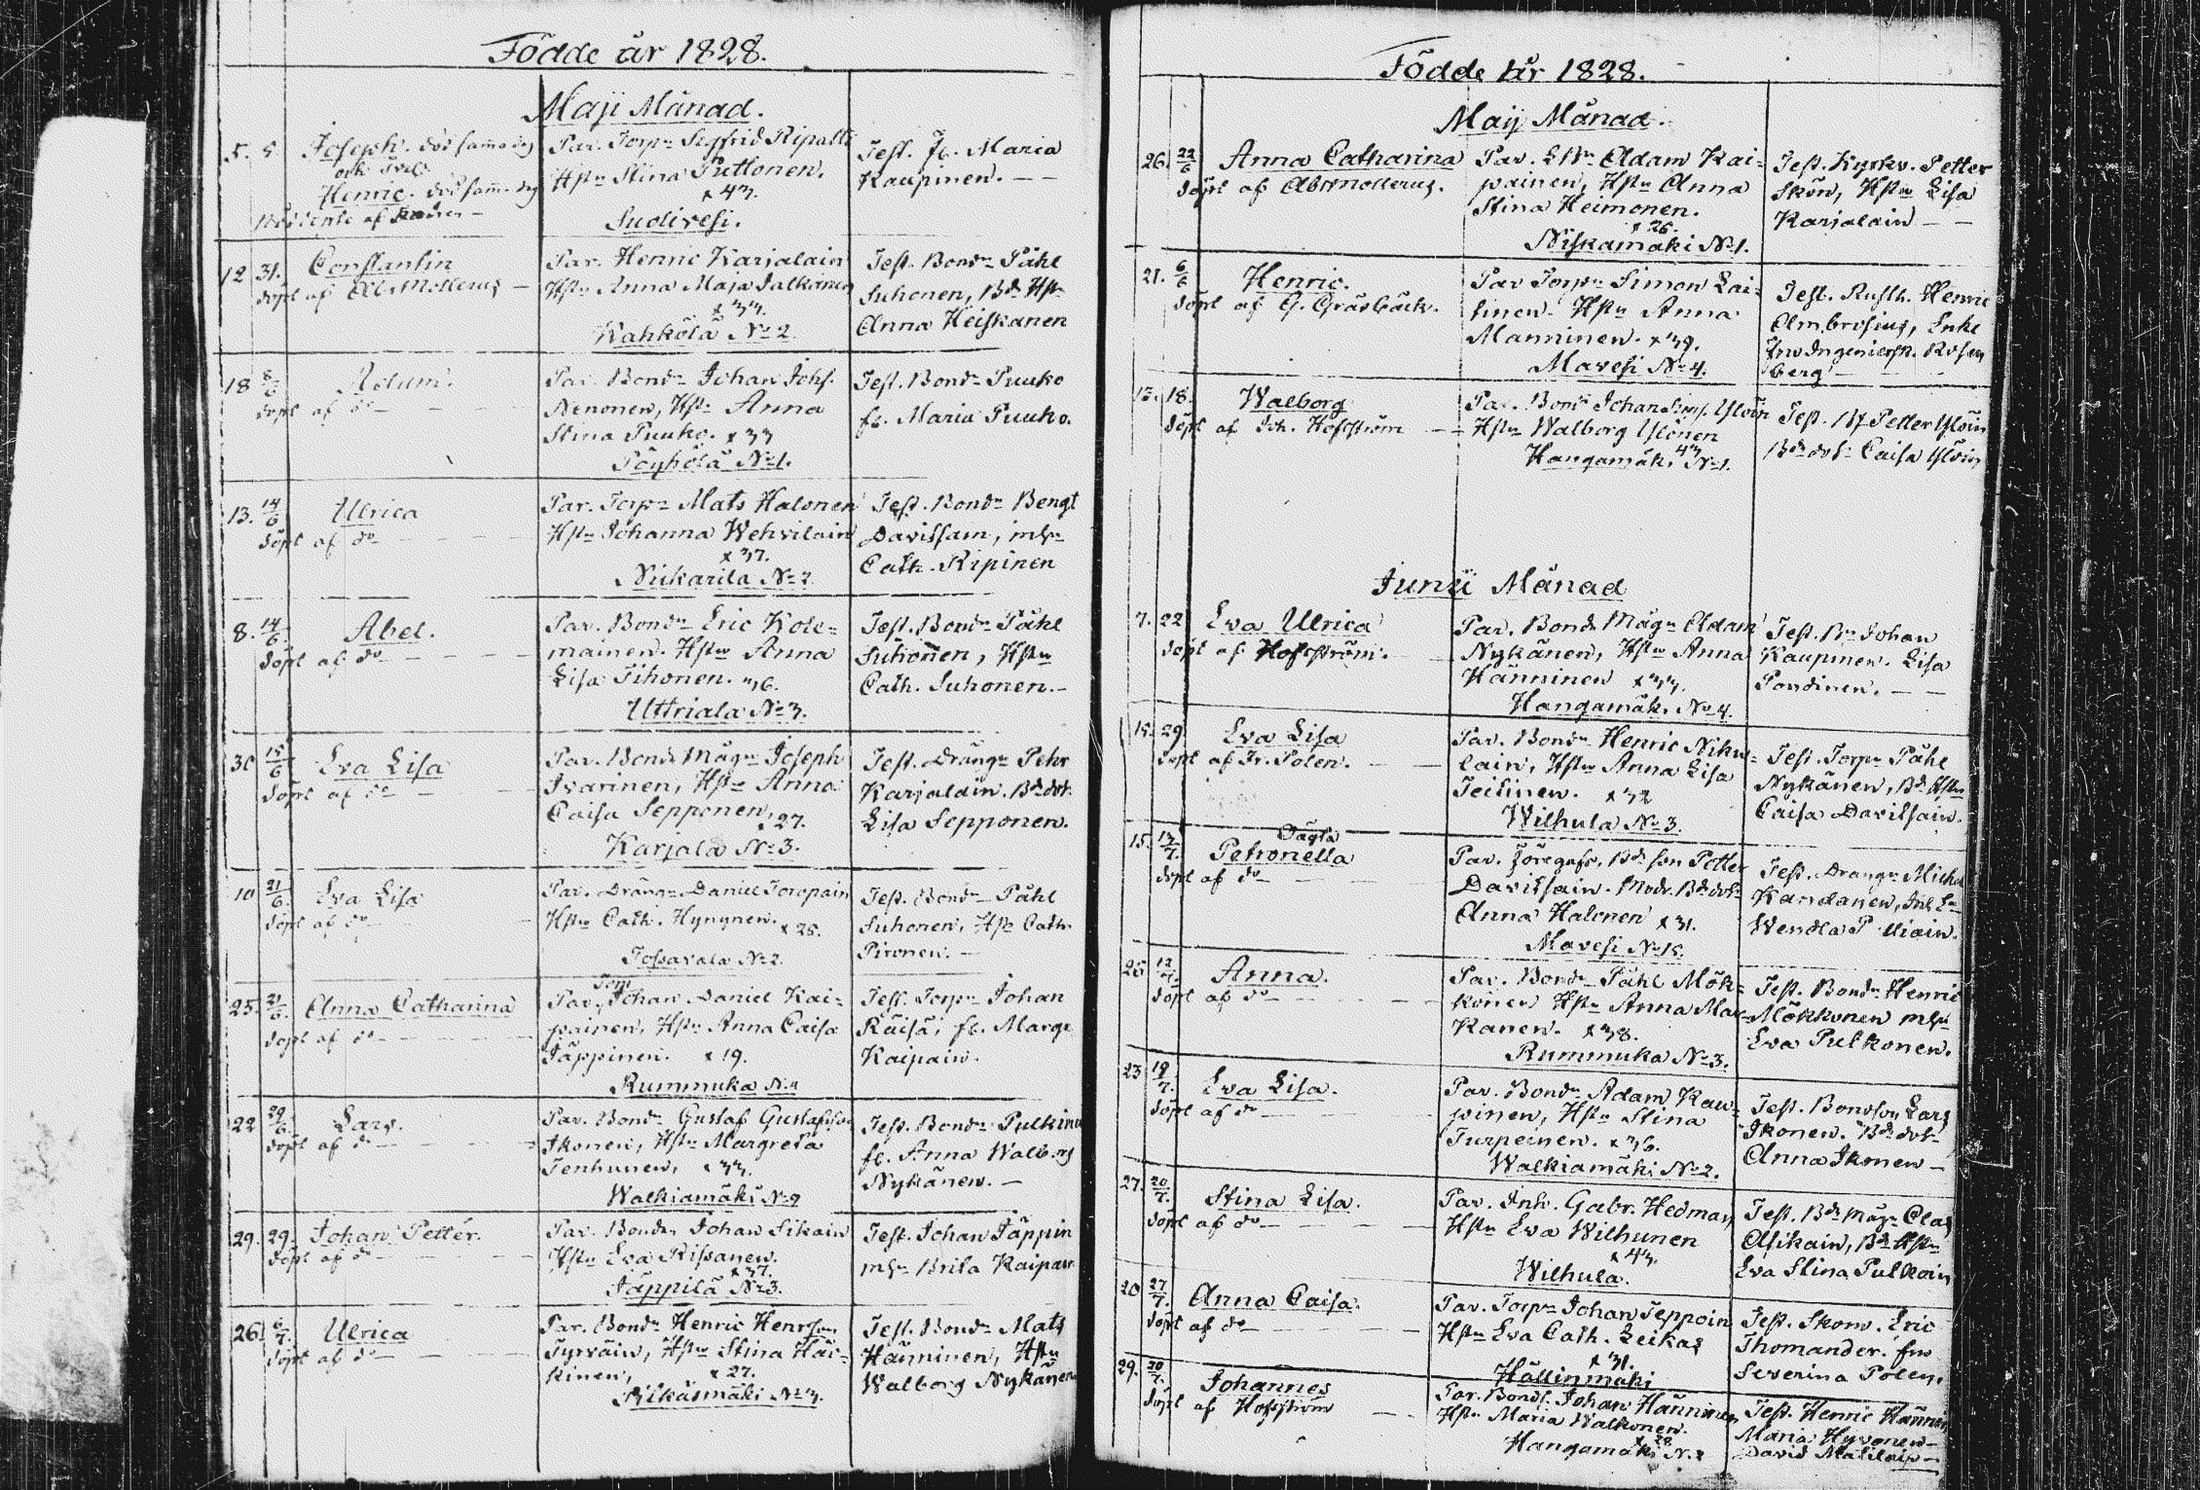 Födde år 1828.
Maji Månad.
5. 5 Joseph. död samma dag Par. Torp:n Segfrid Ripatti Test. Js. Maria
och Tvil.
Henric. död samma dag Hst:u Stina Puttonen. Kaupinen. — —
x 43.
Nöddöpte af Suolivesi.
12 31. Constantin Par. Henric Karjalain Test. Bond:n Påhl
döpt af Ab. Mollerus — Hst:u Anna Maja Jalkanen Suhonen, B:d Hst:u
x 33.
Kahkölä N:o 2 Anna Heiskanen
18 8/6 Adam. Par. Bond:n Johan Johs. Test. Bond:n Puuko
döpt af d:o — — Nenonen, Hst:u Anna fl. Maria Puuko.
Stina Puuko. x 33
Pöyhölä N:o 1.
13. 14/6 Ulrica Par. Torp:n Mats Halonen Test. Bond:n Bengt
döpt af d:o — — Hst:u Johanna Wehvilain Davitsain, mh:n
x 37.
Niskarila N:o 2. Cath. Ripinen
8. 14/6. Abel. Par. Bond:n Eric Kole= Test. Bond:n Påhl
döpt af d:o — — mainen. Hst:u Anna Suhonen, Hst:u
Lisa Tihonen. x 36. Cath. Suhonen. —
Uttriala N:o 3.
30 15/6 Eva Lisa Par. Bond:n Mågn Joseph Test. Dräng:n Pehr
döpt af d:o — — Ivarinen, Hst:u Anna Karjalain. B:d dot:
Caisa Sepponen, x 27. Lisa Sepponen.
Karjala N:o 3.
10 21/6. Eva Lisa Par. Dräng:n Daniel Toropain Test. Bond:n Påhl
döpt af d:o — — Hst:u Cath. Hynynen. x 25. Suhonen, Hst:u Cath.
Tossavala N:o 2. Pironen. —
Torp
25. 21/6. Anna Catharina Par. Johan Daniel Kai= Test. Torp:n Johan
döpt af d:o — — painen, Hst:u Anna Caisa Räisä, fl. Margr.
Jäppinen. x 19. Kaipain.
Rummuka N:o 4
22 29/6. Lars. Par. Bond:n Gustaf Gustafsson Test. Bond:n Pulkinen
döpt af d:o — — Ikonen, Hst:u Margreta fl. Anna Walborg
Tenhunen, x 33. Nykänen. —
Walkiamäki N:o 9
29. 29. Johan Petter. Par. Bond:n Johan Sikain Test. Johan Jäppin
döpt af d:o — — Hst:u Eva Rissanen. mh:n Brita Kaipain
x 37.
Jäppilä N:o 3.
26. 6/7. Ulrica Par. Bond:n Henric Henrsson Test. Bond:n Mats
döpt af d:o — — Tyrväin, Hst:u Stina Häi= Hänninen, Hst:u
kinen, x 27. Walborg Nykänen
Pitkäsmäki N:o 3.
Födde år 1828.
Maij Månad.
26. 22/6 Anna Catharina Par. L:Ms Adam Kai= Test. Kyrkv. Petter
döpt af Ab. Mollerus. painen, Hst:u Anna Skön, Hst:u Lisa
Stina Heimonen. Karjalain —
x 26.
Niskamäki N:o 1.
21. 6/6 Henric. Par Torp:n Simon Lai= Test. Rusth. Henric
döpt af G. Gråsbäck. tinen. Hst:u Anna Ambrosius, Enke
Manninen. x 39. Fru Ingenieursk. Rosen
Mavesi N:o 4. berg
13. 18. Walborg Par. Bond:n Johan Sims. Ylöin Test. Bf Petter Ylöin
döpt af Joh. Hofström — — Hst:u Walborg Ylönen B:d dot: Caisa Ylöin
43
Hangamäki N:o 1.
Junii Månad
7. 22 Eva Ulrica Par. Bond:n Mågn Adam Test. B:n Johan
döpt af Hofström. Nykänen, Hst:u Anna Kaupinen. Lisa
Hänninen x 33. Pondinen. — —
Hangamäki N:o 4.
15. 29 Eva Lisa Par. Bond:n Henric Niku= Test. Torp:n Påhl
döpt af Fr. Polen. — — lain, Hst:u Anna Lisa Nykänen, B:d Hst:u
Teitinen. x 32 Caisa Davitsain.
Wilhula N:o 3.
Oägta
15. 13/7. Petronella Par. Föregifv. B:d son Petter Test. Dräng:n Michel
döpt af d:o — Davitsain. Modr. B:d dot: Kandanen, Inh. E:a
Anna Halonen x 31. Wendla P
Mavesi N:o 15.
25 12/7. Anna. Par. Bond:n Påhl Mök= Test. Bond:n Henric
döpt af d:o — — konen Hst:u Anna Mar= Mökkonen mh:n
kanen. x 38. Eva Pulkonen.
Rummuka N:o 3.
23 19/7. Eva Lisa. Par. Bond:n Adam Kau= Test. Bondson Lars
döpt af d:o — pinen, Hst:u Stina Ikonen. B:d dot:
Turpeinen. x 36. Anna Ikonen —
Walkiamäki N:o 2.
27. 20/7. Stina Lisa. Par. Inh. Gabr. Hedman Test. B:d Mågn Clas
döpt af d:o — Hst:u Eva Wilhunen Asikain, B:d Hst:u
x 43.
Wilhula. Eva Stina Pulkoin
20 27/7. Anna Caisa. Par. Torp:n Johan Seppoin Test. Skom. Eric
döpt af d:o — Hst:u Eva Cath. Leikas Thomander. fru
x 31.
Hällinmäki Severina Polen.
29. 20/7. Johannes Par. Bond:n Johan Hänninen Test. Henric Hännin
döpt af Hofström — Hst:u Maria Walkonen. Maria Hyvonen —
x 28
Hangamäki N:o 2 David Matilain —